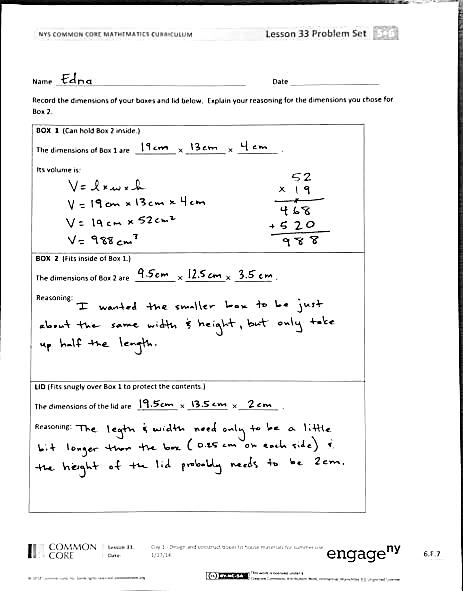 NYS COMMON CORE MATHEMATICS CURRICULUM Lesson 33 Problem Set 5•6
Name Edna Date
Record the dimensions of your boxes and lid below. Explain your reasoning for the dimensions you chose for
Box 2.
BOX 1 (Can hold Box 2 inside.)
The dimensions of Box 1 are 19cm × 13cm × 4cm .
Its volume is:
V = l × w × h
V = 19cm × 13cm × 4cm
V = 19cm × 52cm²
V = 988cm³
52
× 19
468
+ 520
988
BOX 2 (Fits inside of Box 1.)
The dimensions of Box 2 are 9.5cm × 12.5cm × 3.5cm .
Reasoning: I wanted the smaller box to be just
about the same width & height, but only take
up half the length.
LID (Fits snugly over Box 1 to protect the contents.)
The dimensions of the lid are 19.5cm × 13.5cm × 2cm .
Reasoning: The legth & width need only to be a little
bit longer than the box (0.25 cm on each side) &
the height of the lid probably needs to be 2cm.
COMMON
CORE
Lesson 33:
Date: 1/17/14
Day 1—Design and construct boxes to house materials for summer use
engageny
6.F.7